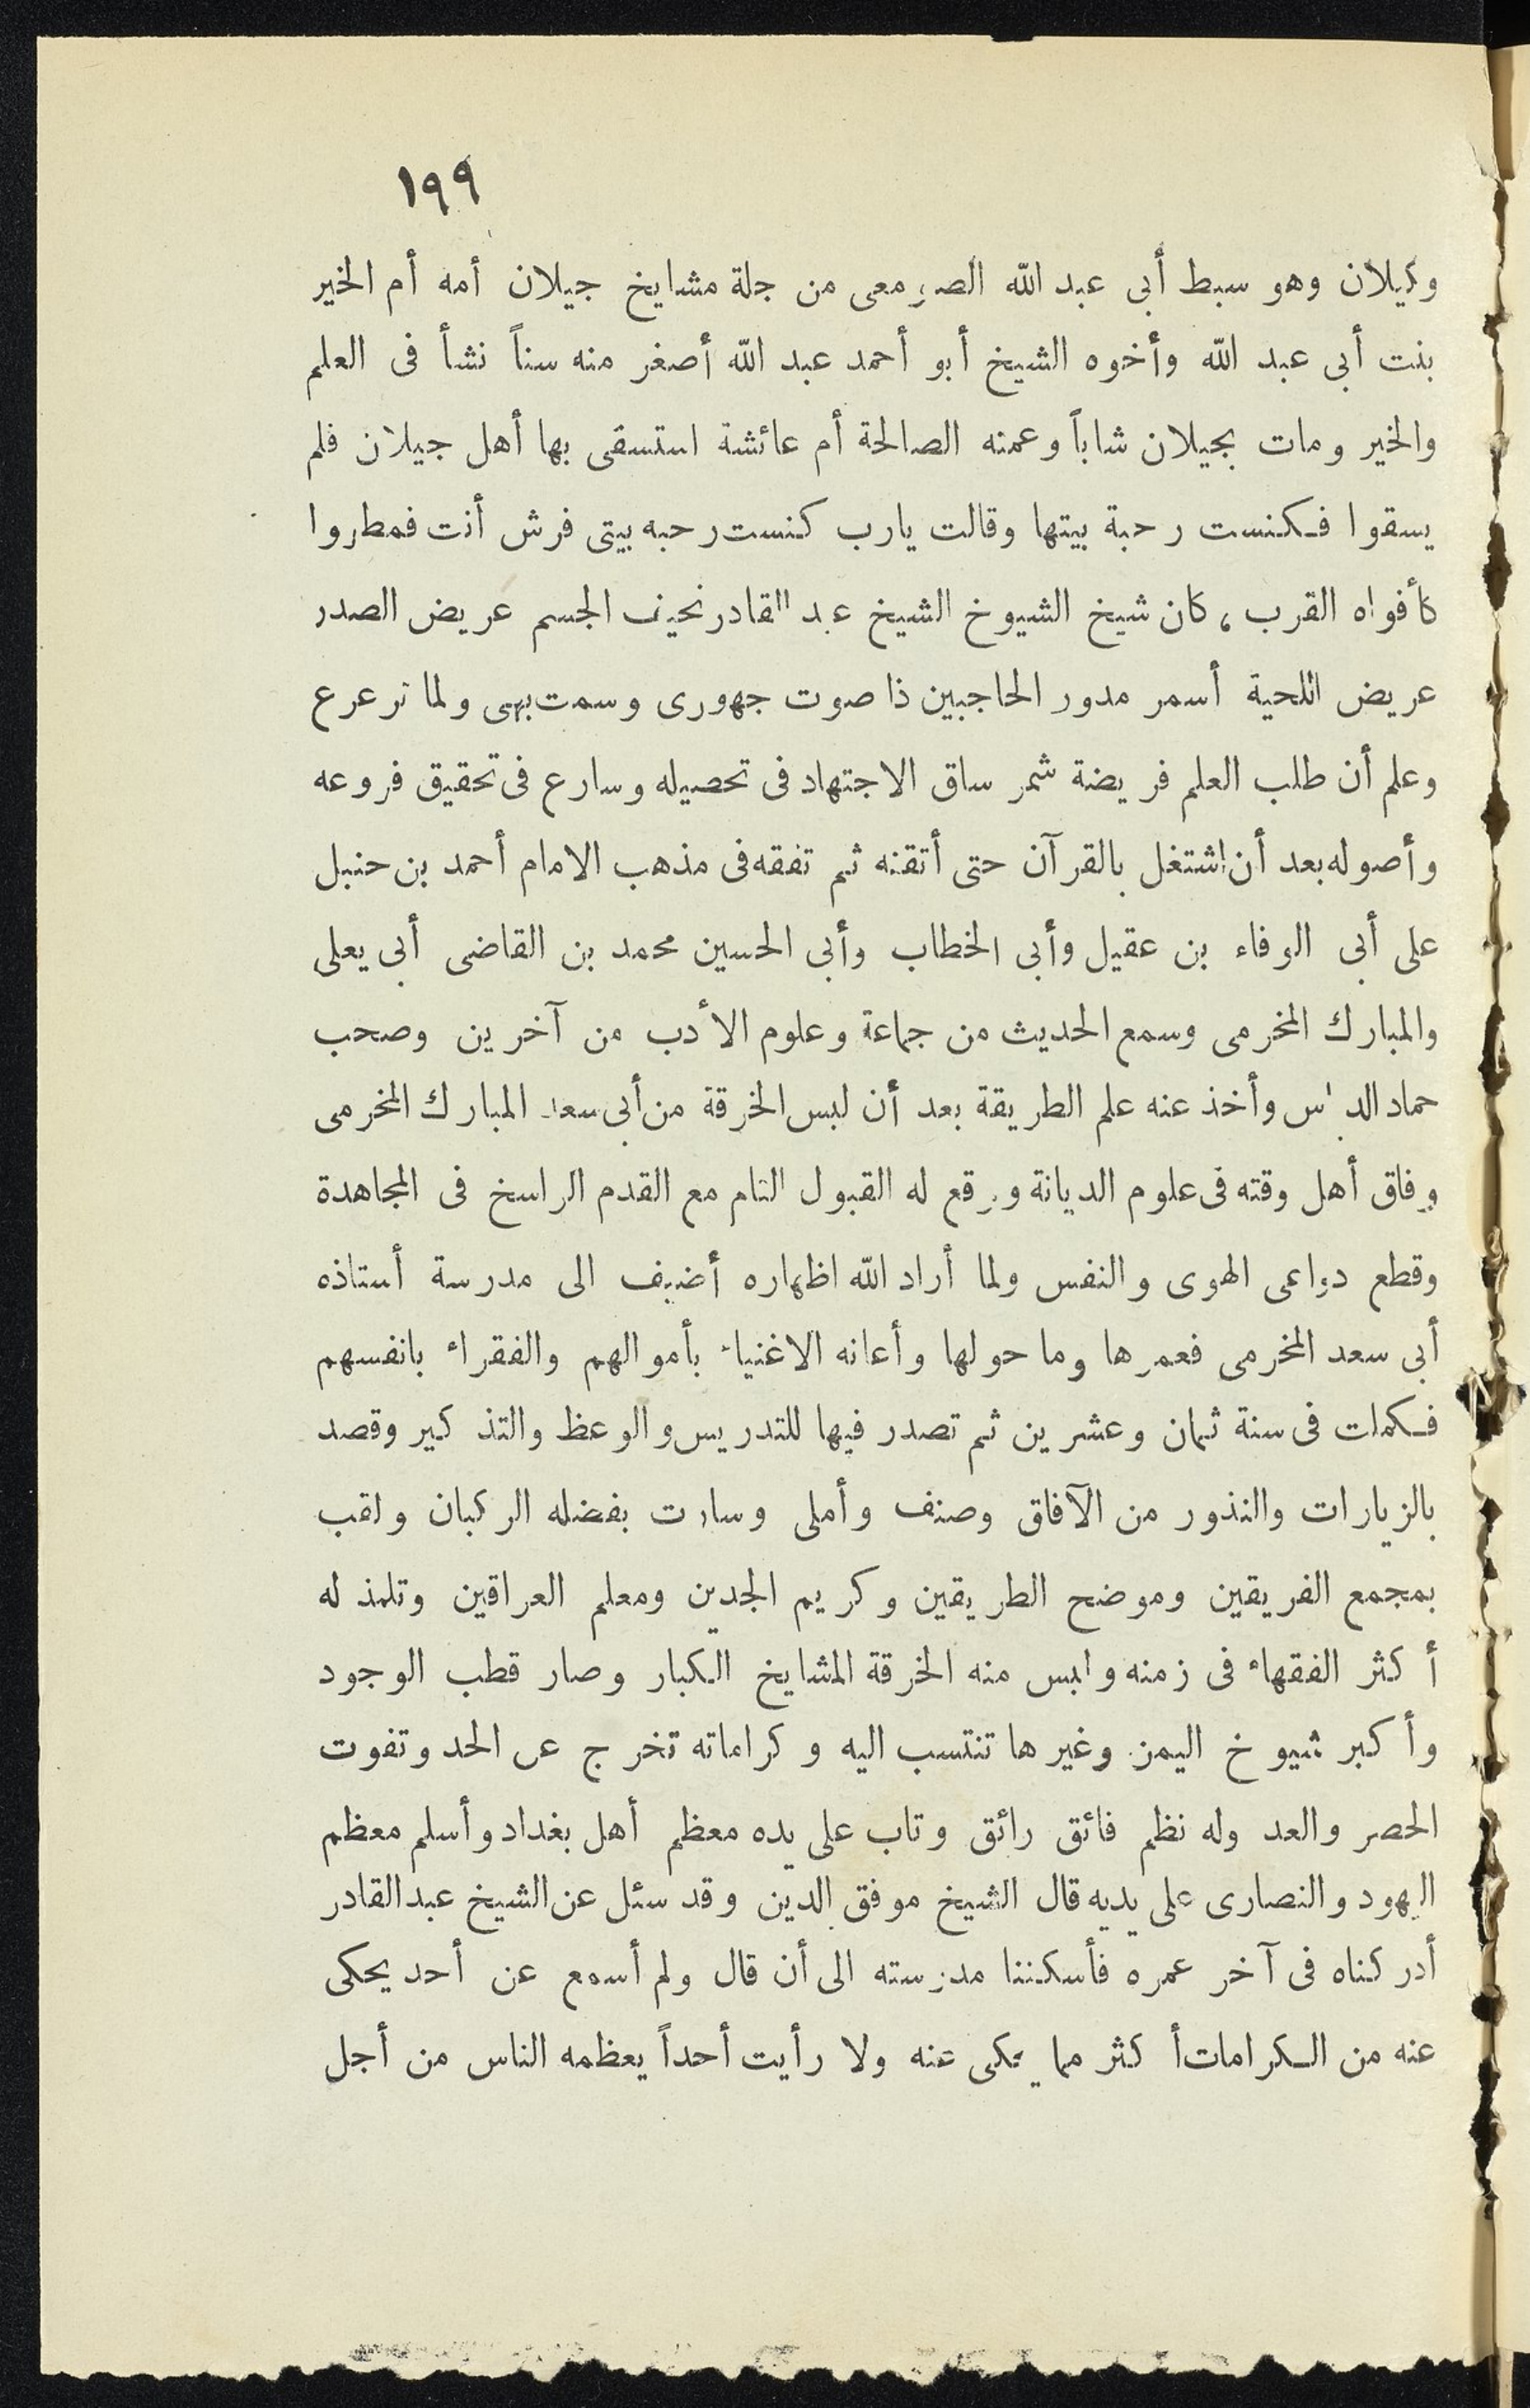 ١٩٩
وكيلان وهو سبط أبى عبد الله الصومعى من جلة مشايخ جيلان أمه أم الخير
بنت أبى عبد الله وأخوه الشيخ أبو أحمد عبد الله أصغر منه سناً نشأ فى العلم
والخير ومات بجيلان شاباً وعمته الصالحة أم عائشة استسقى بها أهل جيلان فلم
يسقوا فكنست رحبة بيتها وقالت يارب كنست رحبه بيتى فرش أنت فمطروا
كأفواه القرب، كان شيخ الشيوخ الشيخ عبد القادر نحيف الجسم عريض الصدر
عريض اللحية أسمر مدور الحاجبين ذا صوت جهورى وسمت بهى ولما ترعرع
وعلم أن طلب العلم فريضة شمر ساق الاجتهاد فى تحصيله وسارع فى تحقيق فروعه
وأصوله بعد أن اشتغل بالقرآن حتى أتقنه ثم تفقه فى مذهب الامام أحمد بن حنبل
على أبى الوفاء بن عقيل وأبى الخطاب وأبى الحسين محمد بن القاضى أبى يعلى
والمبارك المخرمى وسمع الحديث من جماعة وعلوم الأدب من آخرين وصحب
حماد الدباس وأخذ عنه علم الطريقة بعد أن لبس الخرقة من أبى سعد المبارك المخرمى
وفاق أهل وقته فى علوم الديانة ووقع له القبول التام مع القدم الراسخ فى المجاهدة
وقطع دواعى الهوى والنفس ولما أراد الله اظهاره أضيف الى مدرسة أستاذه
أبى سعد المخرمى فعمرها وما حولها وأعانه الاغنياء بأموالهم والفقراء بانفسهم
فكملت فى سنة ثمان وعشرين ثم تصدر فيها للتدريس والوعظ والتذكير وقصد
بالزيارات والنذور من الآفاق وصنف وأملى وسارت بفضله الركبان ولقب
بمجمع الفريقين وموضح الطريقين وكريم الجدين ومعلم العراقين وتلمذ له
أكثر الفقهاء فى زمنه ولبس منه الخرقة المشايخ الكبار وصار قطب الوجود
وأكبر شيوخ اليمن وغيرها تنتسب اليه وكراماته تخرج عن الحد وتفوت
الحصر والعد وله نظم فائق رائق وتاب على يده معظم أهل بغداد وأسلم معظم
اليهود والنصارى على يديه قال الشيخ موفق الدين وقد سئل عن الشيخ عبد القادر
أدركناه فى آخر عمره فأسكننا مدرسته الى أن قال ولم أسمع عن أحد يحكى
عنه من الكرامات أكثر مما يحكى عنه ولا رأيت أحداً يعظمه الناس من أجل